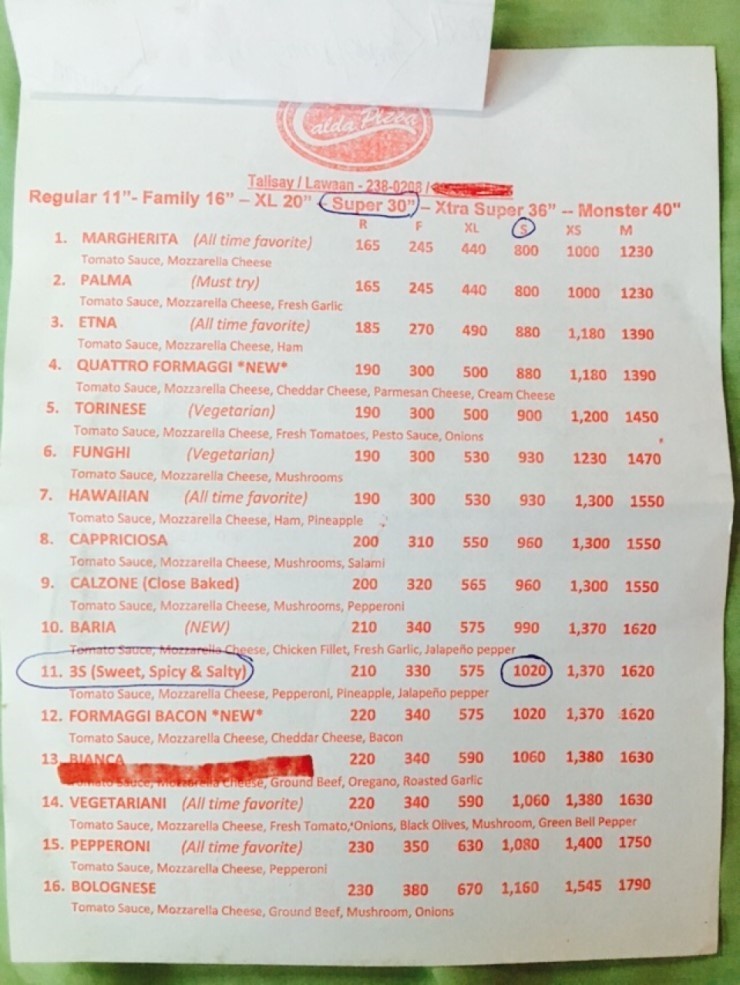 Calda Pizza
Talisay / Lawaan - 238-0208 /
Regular 11"- Family 16" – XL 20" - Super 30" – Xtra Super 36" -- Monster 40"
R F XL S XS M
1. MARGHERITA (All time favorite) 165 245 440 800 1000 1230
Tomato Sauce, Mozzarella Cheese
2. PALMA (Must try) 165 245 440 800 1000 1230
Tomato Sauce, Mozzarella Cheese, Fresh Garlic
3. ETNA (All time favorite) 185 270 490 880 1,180 1390
Tomato Sauce, Mozzarella Cheese, Ham
4. QUATTRO FORMAGGI *NEW* 190 300 500 880 1,180 1390
Tomato Sauce, Mozzarella Cheese, Cheddar Cheese, Parmesan Cheese, Cream Cheese
5. TORINESE (Vegetarian) 190 300 500 900 1,200 1450
Tomato Sauce, Mozzarella Cheese, Fresh Tomatoes, Pesto Sauce, Onions
6. FUNGHI (Vegetarian) 190 300 530 930 1230 1470
Tomato Sauce, Mozzarella Cheese, Mushrooms
7. HAWAIIAN (All time favorite) 190 300 530 930 1,300 1550
Tomato Sauce, Mozzarella Cheese, Ham, Pineapple
8. CAPPRICIOSA 200 310 550 960 1,300 1550
Tomato Sauce, Mozzarella Cheese, Mushrooms, Salami
9. CALZONE (Close Baked) 200 320 565 960 1,300 1550
Tomato Sauce, Mozzarella Cheese, Mushrooms, Pepperoni
10. BARIA (NEW) 210 340 575 990 1,370 1620
Tomato Sauce, Mozzarella Cheese, Chicken Fillet, Fresh Garlic, Jalapeño pepper
11. 3S (Sweet, Spicy & Salty) 210 330 575 1020 1,370 1620
Tomato Sauce, Mozzarella Cheese, Pepperoni, Pineapple, Jalapeño pepper
12. FORMAGGI BACON *NEW* 220 340 575 1020 1,370 1620
Tomato Sauce, Mozzarella Cheese, Cheddar Cheese, Bacon
13. BIANCA 220 340 590 1060 1,380 1630
Tomato Sauce, Mozzarella Cheese, Ground Beef, Oregano, Roasted Garlic
14. VEGETARIANI (All time favorite) 220 340 590 1,060 1,380 1630
Tomato Sauce, Mozzarella Cheese, Fresh Tomato, Onions, Black Olives, Mushroom, Green Bell Pepper
15. PEPPERONI (All time favorite) 230 350 630 1,080 1,400 1750
Tomato Sauce, Mozzarella Cheese, Pepperoni
16. BOLOGNESE 230 380 670 1,160 1,545 1790
Tomato Sauce, Mozzarella Cheese, Ground Beef, Mushroom, Onions